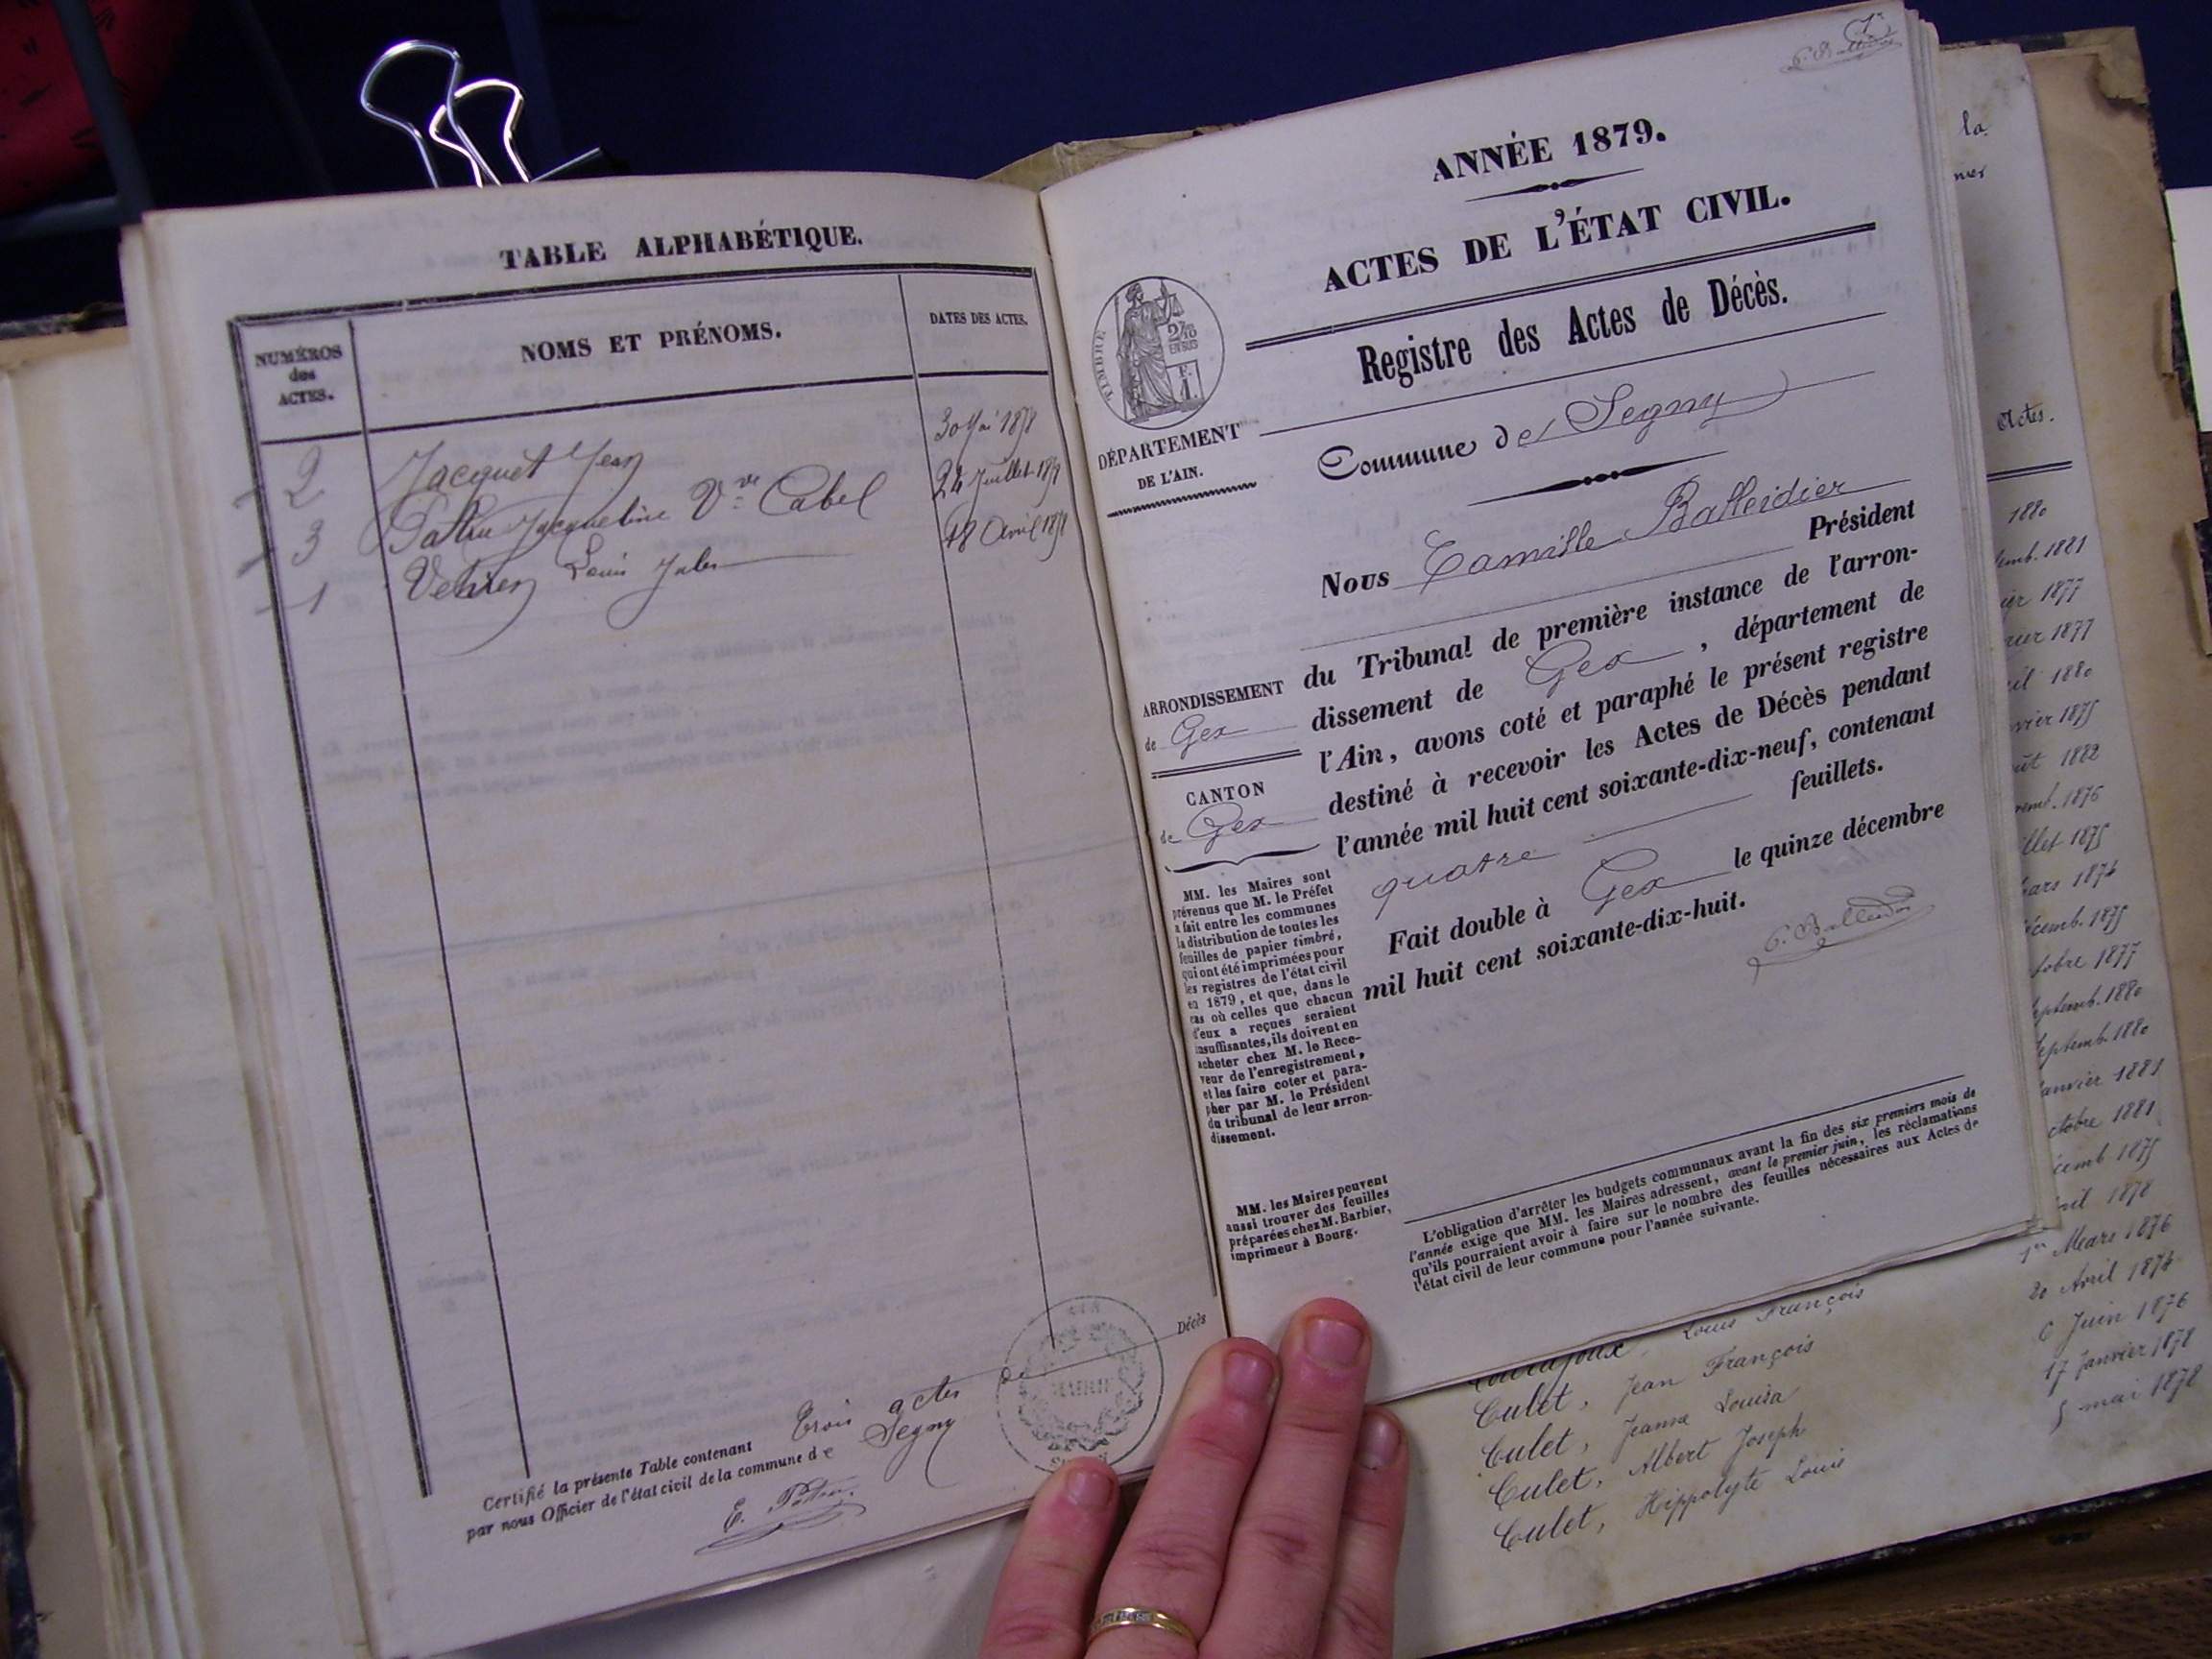 TABLE ALPHABÉTIQUE.
NUMÉROS
des
ACTES.
NOMS ET PRÉNOMS.
DATES DES ACTES.
2 Jacquet Jean 30 Mai 1878
3 Jacqueline Vve Cabel 24 Juillet 1878
1 Louis Jules 18 Avril 1878
Certifié la présente Table contenant trois actes de Décès
par nous Officier de l'état civil de la commune de Segny
E.
7e
ANNÉE 1879.
ACTES DE L'ÉTAT CIVIL.
Registre des Actes de Décès.
TIMBRE
EN SUS
F.
1.
DÉPARTEMENT
DE L'AIN.
Commune de Segny
Nous Camille Balleidier Président
du Tribunal de première instance de l'arron-
dissement de Gex, département de
l'Ain, avons coté et paraphé le présent registre
destiné à recevoir les Actes de Décès pendant
l'année mil huit cent soixante-dix-neuf, contenant
quatre feuillets.
Fait double à Gex le quinze décembre
mil huit cent soixante-dix-huit.
C. Balleidier
ARRONDISSEMENT
de Gex
CANTON
de Gex
MM. les Maires sont
prévenus que M. le Préfet
a fait entre les communes
la distribution de toutes les
feuilles de papier timbré,
qui ont été imprimées pour
les registres de l'état civil
en 1879, et que, dans le
cas où celles que chacun
d'eux a reçues seraient
insuffisantes, ils doivent en
acheter chez M. le Rece-
veur de l'enregistrement,
et les faire coter et para-
pher par M. le Président
du tribunal de leur arron-
dissement.
MM. les Maires peuvent
aussi trouver des feuilles
préparées chez M. Barbier,
imprimeur à Bourg.
L'obligation d'arrêter les budgets communaux avant la fin des six premiers mois de
l'année exige que MM. les Maires adressent, avant le premier juin, les réclamations
qu'ils pourraient avoir à faire sur le nombre des feuilles nécessaires aux Actes de
l'état civil de leur commune pour l'année suivante.
la
Actes.
1880
emb. 1881
1877
rier 1877
ril 1880
vier 1875
oût 1882
vemb. 1876
illet 1875
ars 1874
écemb. 1875
tobre 1877
eptemb. 1880
eptemb. 1880
anvier 1881
ctobre 1881
écemb 1875
vril 1878
1er Mars 1876
Louis François 20 Avril 1874
Culet, Jean François 6 Juin 1876
Culet, Jeanne Louisa 17 Janvier 1878
Culet, Albert Joseph 5 mai 1878
Culet, Hippolyte Louis